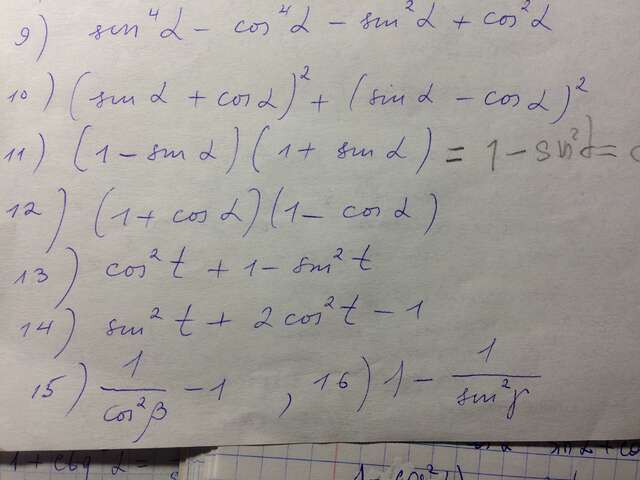 9) sin⁴α − cos⁴α − sin²α + cos²α
10) (sin α + cos α)² + (sin α − cos α)²
11) (1 − sin α)(1 + sin α) = 1 − sin²α = c
12) (1 + cos α)(1 − cos α)
13) cos²t + 1 − sin²t
14) sin²t + 2cos²t − 1
15) 1/cos²β − 1 , 16) 1 − 1/sin²γ
1 + ctg α =